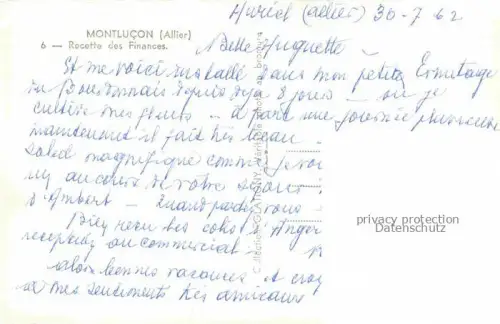 Huriel (Allier) 30-7 62
MONTLUÇON (Allier)
6 — Recette des Finances.
Belle Huguette —
Et me voici installé dans mon petit Ermitage
du Bourbonnais depuis déjà 8 jours — où je
cultive mes fleurs — à part une journée pluvieuse
maintenant il fait très beau
soleil magnifique comme je
au cours de votre séjour
d'Ambert — Quand partez vous —
Bien reçu les colis
au commercial —
alors bonnes vacances et
à mes sentiments très amicaux
privacy protection
Datenschutz